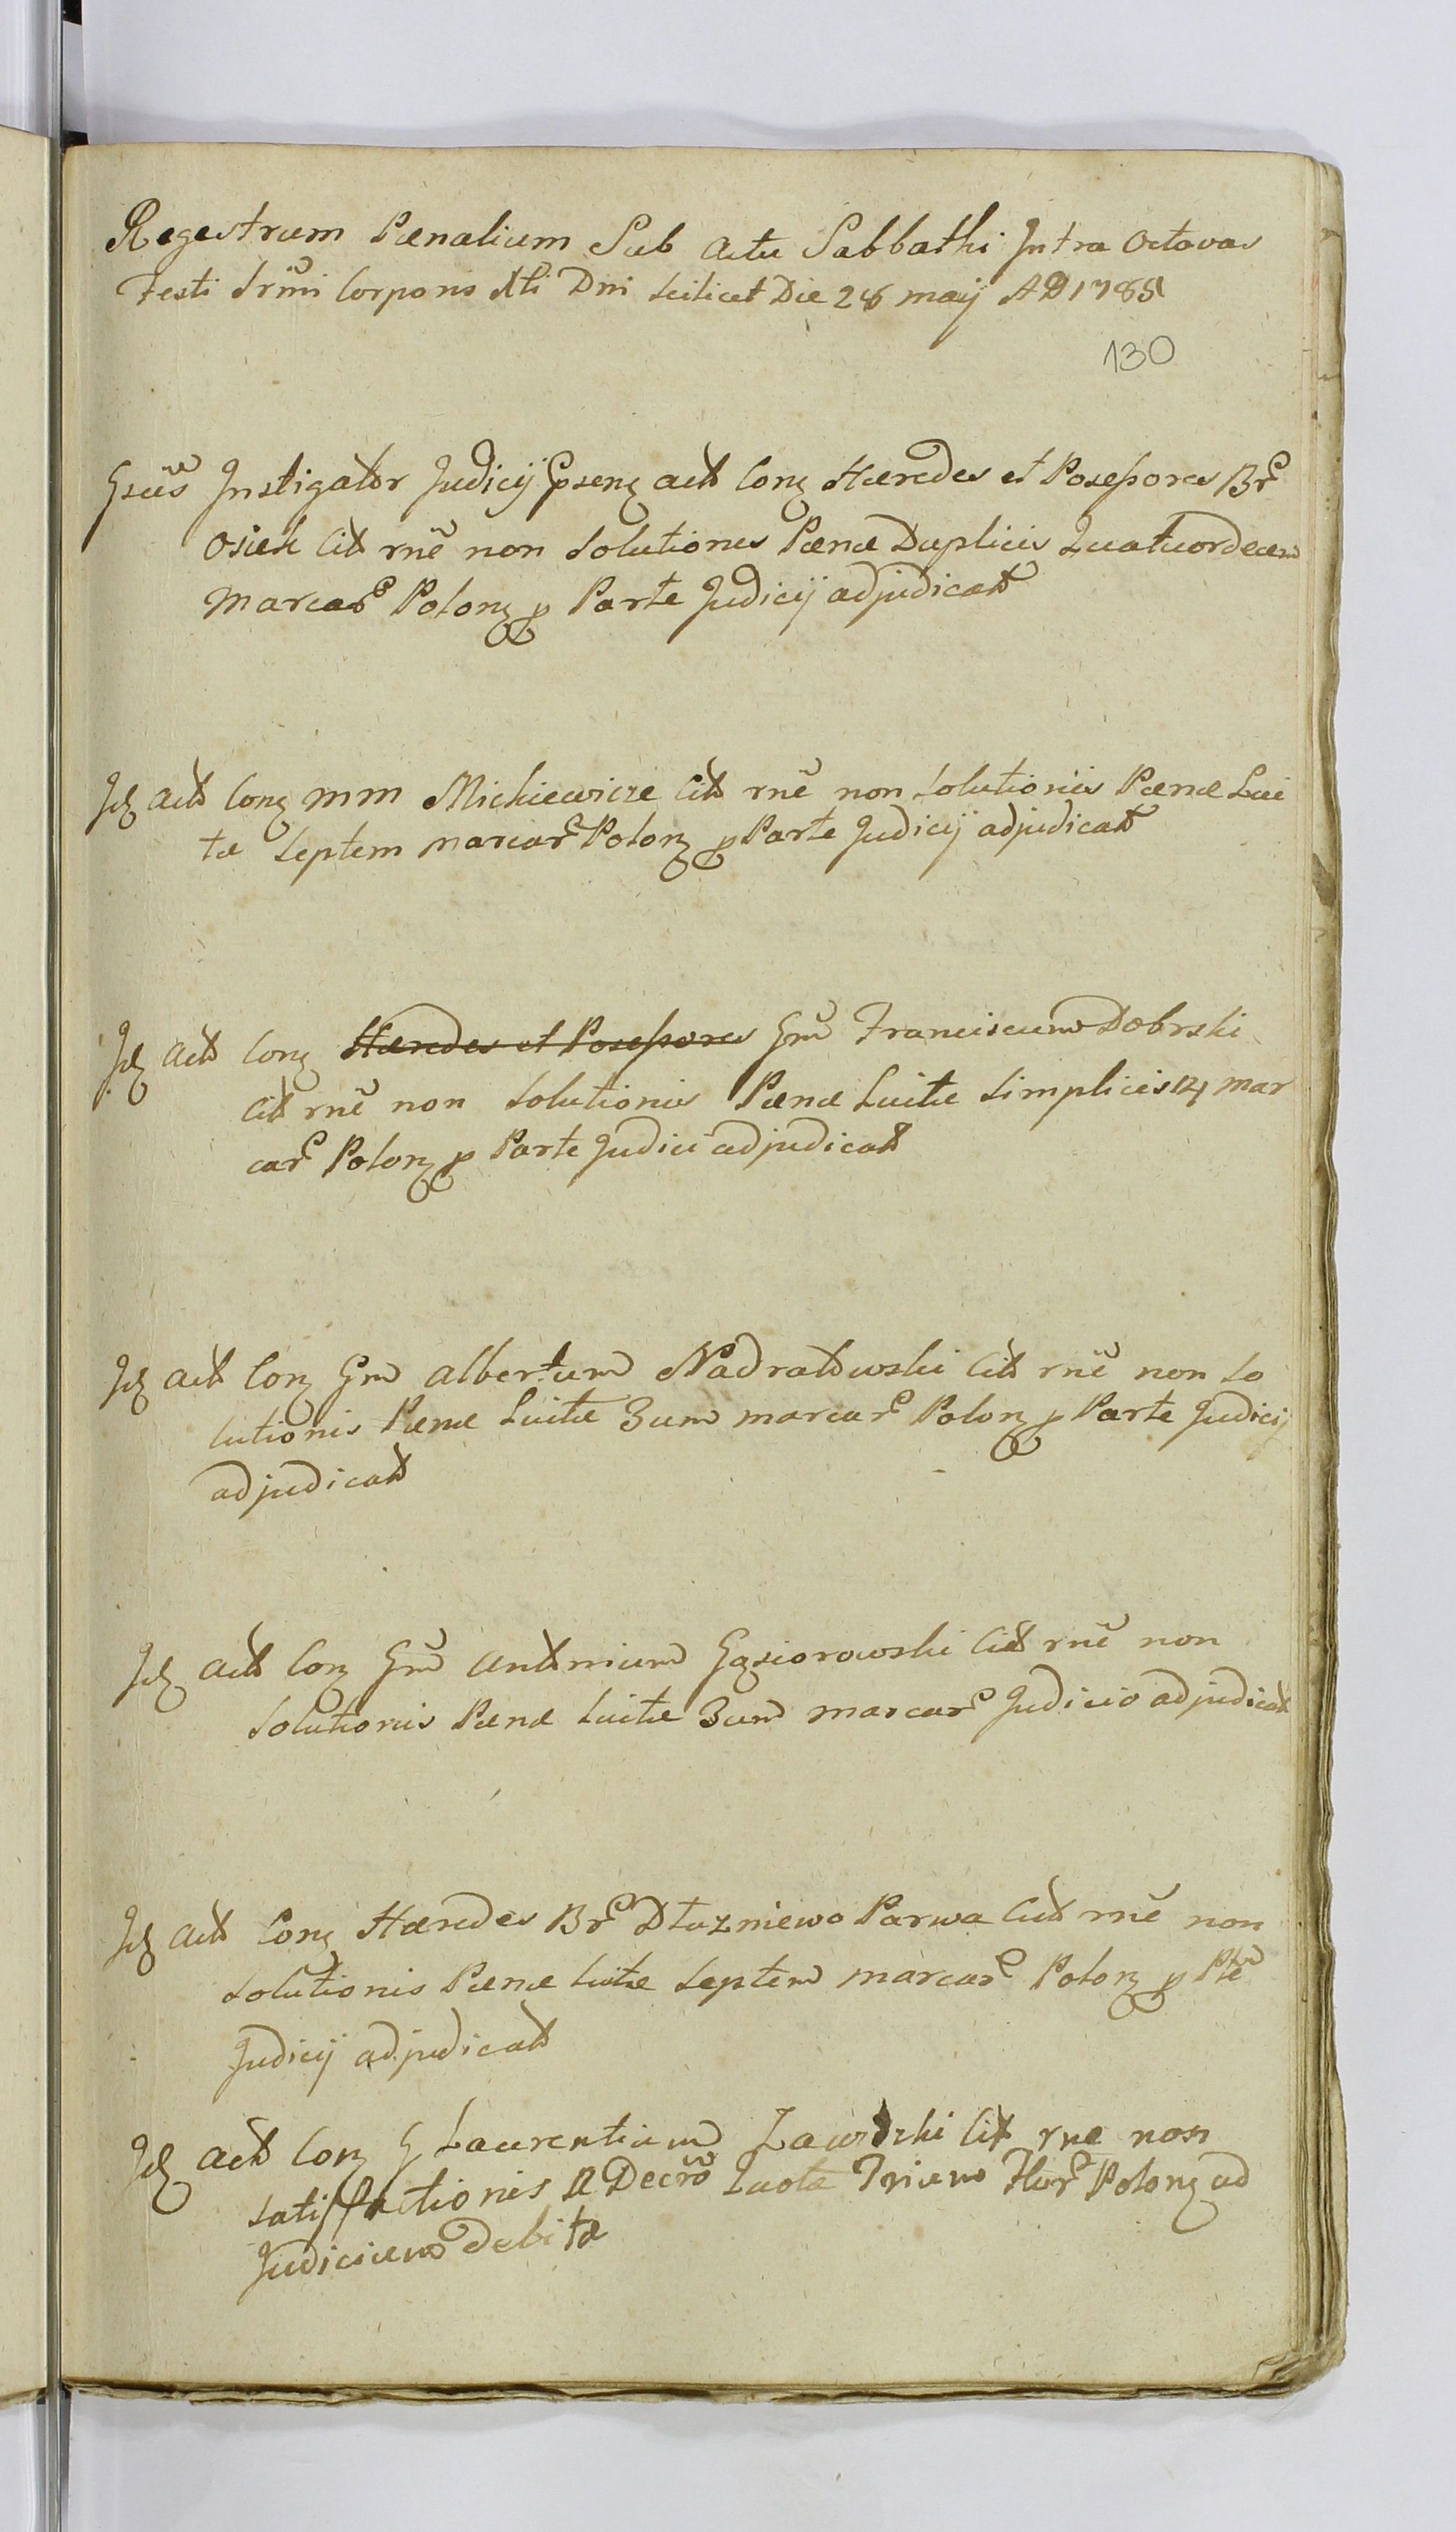 Regestrum Pænalium Sub Actu Sabbathi Intra Octavas
Festi Srm̃i Corporis Xti Dni scilicet Die 28 maij AD 1785
130
Instigator Judicij Pñseng actt Cong Hæredes et Poseßores Br̃
Osiek Citt rnẽ non Solutionis Pænæ Duplicis Quatuordecem
Marcar̃ Polong p Parte Judicij adjudicatt
Id actt Cong mm Mickiewicze Citt rnẽ non Solutionis Pænæ Lui
tæ Septem marcar̃ Polong p Parte Judicij adjudicatt
Id actt Cong Hæredes et Poseßores Gm̃ Franciscum Dobrski
Citt rnẽ non Solutionis Pænæ Luitæ Simplicis 14 mar
car̃ Polong p Parte Judicii adjudicatt
Id actt Cong Gm Albertum Nadratowski Citt rnẽ non So
lutionis Pænæ Luitæ 3um marcar̃ Polong p Parte Judicij
adjudicatt
Id actt Cong Gm̃ Antonium Gąsiorowski Citt rnẽ non
Solutionis Pænæ Luitæ 3um marcar̃ Judicio adjudicatt
Id actt Cong Hæredes Br̃ Dłuzniewo Parwa Citt rnẽ non
Solutionis Pænæ Luitæ Septem marcar̃ Polong p Ptẽ
Judicij adjudicatt
Id actt Cong G Laurentium Citt rne non
Satisfactionis Decr̃o Quota Trium Flor̃ Polong ad
Judicium Debitæ